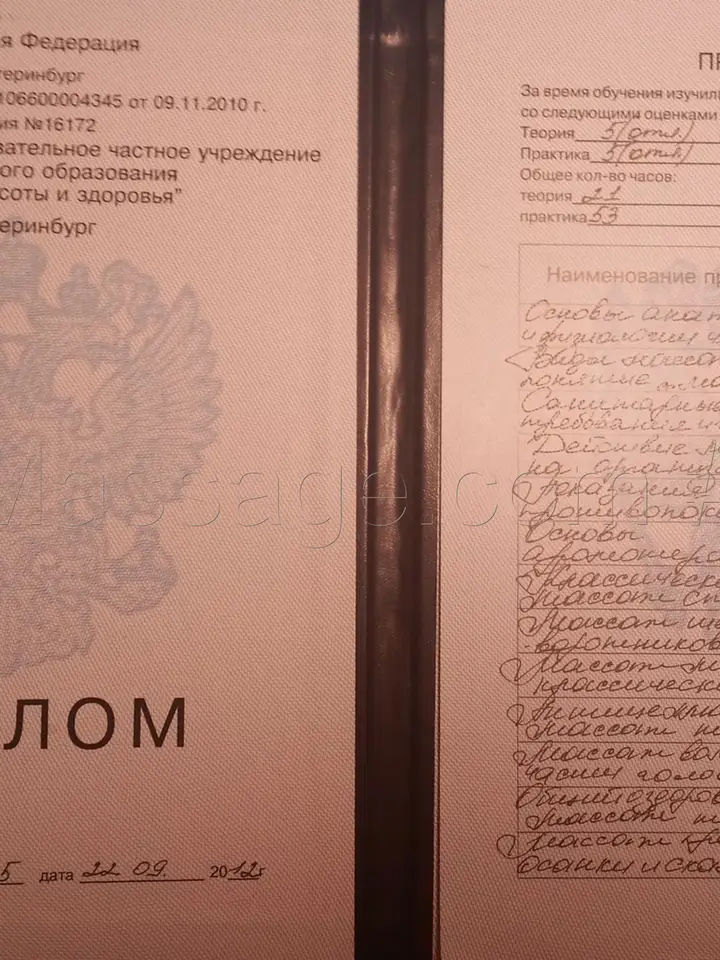 я Федерация
теринбург
106600004345 от 09.11.2010 г.
ия №16172
вательное частное учреждение
ого образования
соты и здоровья"
еринбург
ЛОМ
5 дата 22 09. 2012г
ПР
За время обучения изучил
со следующими оценками
Теория 5(отл.)
Практика 5(отл)
Общее кол-во часов:
теория 21
практика 53
Наименование пр
Основы анат
и физиологии ч
Виды массаж
понятие
Санитарны
требования
Действие
на организ
Показания
противопока
Основы
аромотера
Классическ
массаж сп
Массаж ше
воротников
Массаж
классическ
Антицеллю
массаж
Массаж вол
части голов
Общий оздоров
массаж
Массаж
осанки и ска
Massage.com